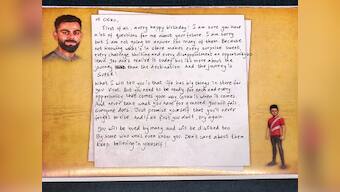 Hi Chiku,
First of all, a very happy birthday! I am sure you have
lots of questions for me about your future. I am sorry
but I am not going to answer too many of them. Because
not knowing what's in store makes every surprise sweet,
every challenge thrilling and every disappointment an opportunity to
learn. You don't realise it today but it's more about the
journey than the destination. And the journey is
SUPER!
What I will tell you is that life has big things in store for
you Virat. But you need to be ready for each and every
opportunity that comes your way. Grab it when it comes.
And never take what you have for granted. You will fail.
Everyone does. Just promise yourself that you'll never
forget to rise. And if at first you don't, try again.
You will be loved by many and will be disliked too
By some who don't even know you. Don't care about them.
Keep believing in yourself!